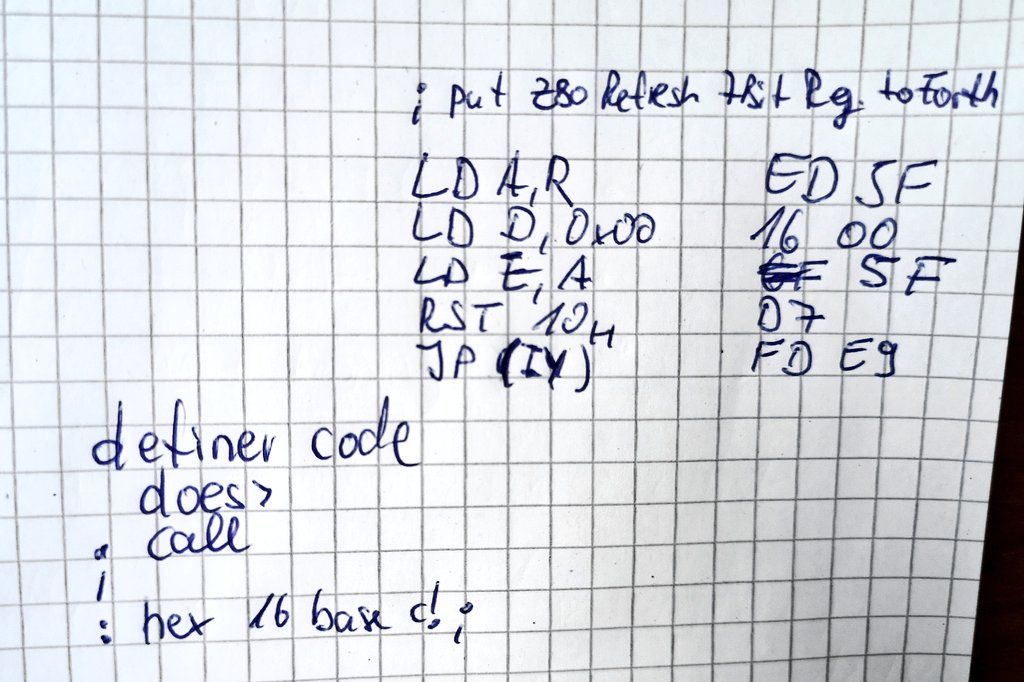 ; put Z80 Refresh 7Bit Reg. to Forth
LD A,R ED 5F
LD D, 0x00 16 00
LD E, A 5F
RST 10H D7
JP (IY) FD E9
definer code
does>
call
;
: hex 16 base c! ;